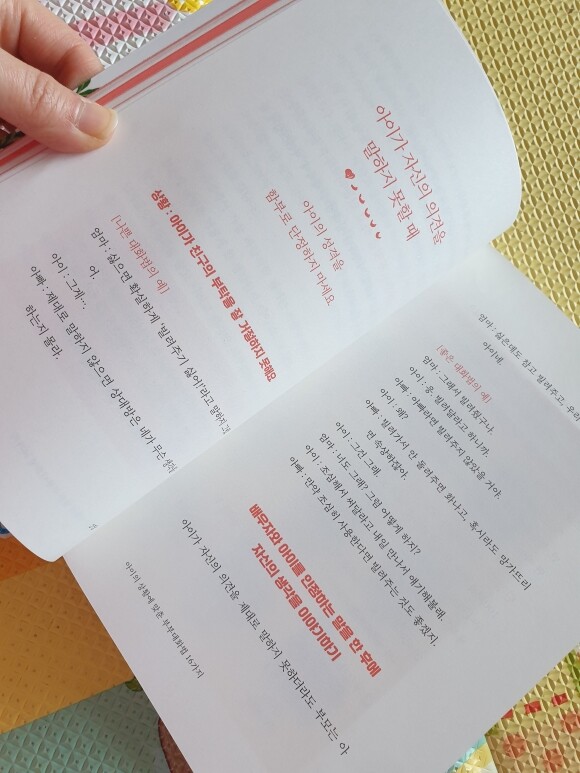 아이가 자신의 의견을
말하지 못할 때
아이의 성격을
함부로 단정하지 마세요
상황 : 아이가 친구의 부탁을 잘 거절하지 못해요
[나쁜 대화법의 예]
엄마 : 싫으면 확실하게 '빌려주기 싫어!'라고 말하지 그랬
어.
아이 : 그게…
아빠 : 제대로 말하지 않으면 상대방은 네가 무슨
하는지 몰라.
엄마 : 싫은데도 참고 빌려주고, 우리
아이네.
[좋은 대화법의 예]
엄마 : 그래서 빌려줬구나.
아이 : 응. 빌려달라고 하니까.
아빠 : 아빠라면 빌려주지 않았을 거야.
아이 : 왜?
아빠 : 빌려가서 안 돌려주면 화나고, 혹시라도 망가뜨리
면 속상하잖아.
아이 : 그건 그래.
엄마 : 너도 그래? 그럼 어떻게 하지?
아이 : 조심해서 써달라고 내일 만나서 얘기해볼래.
아빠 : 만약 조심히 사용한다면 빌려주는 것도 좋겠지.
배우자와 아이를 인정하는 말을 한 후에
자신의 생각을 이야기하기
아이가 자신의 의견을 제대로 말하지 못하더라도 부모는 아
아이의 상황에 맞춘 부부대화법 16가지